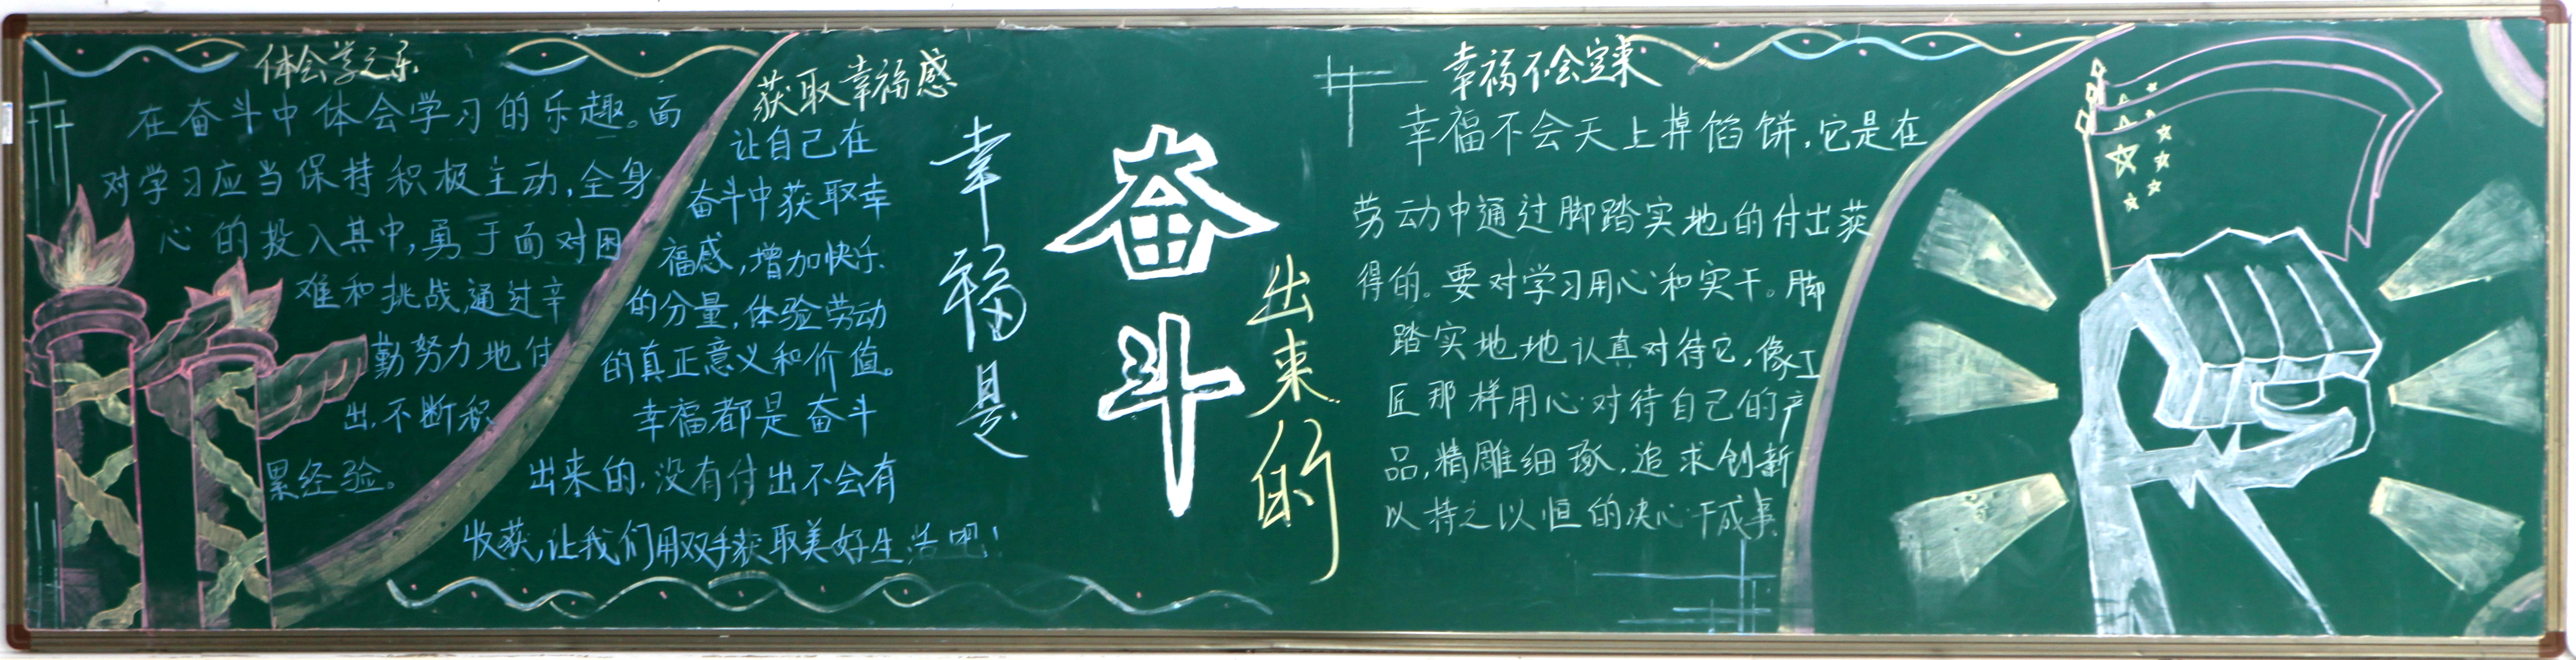 体会学之乐
在奋斗中体会学习的乐趣。面
对学习应当保持积极主动,全身
心的投入其中,勇于面对困
难和挑战,通过辛
勤努力地付
出,不断积
累经验。
获取幸福感
让自己在
奋斗中获取幸
福感,增加快乐
的分量,体验劳动
的真正意义和价值。
幸福都是奋斗
出来的,没有付出不会有
收获,让我们用双手获取美好生活吧!
幸福是
奋斗
出来的
幸福不会空来
幸福不会天上掉馅饼,它是在
劳动中通过脚踏实地的付出获
得的。要对学习用心和实干。脚
踏实地地认真对待它,像工
匠那样用心对待自己的产
品,精雕细琢,追求创新
以持之以恒的决心干成事